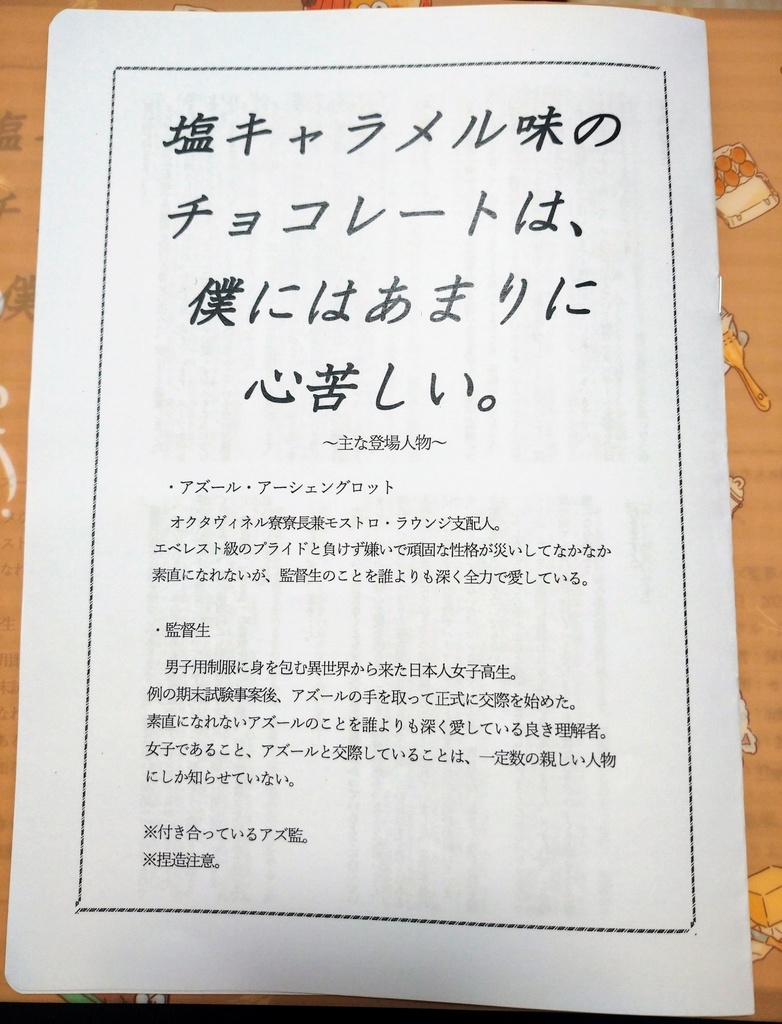 塩キャラメル味の
チョコレートは、
僕にはあまりに
心苦しい。
～主な登場人物～
・アズール・アーシェングロット
オクタヴィネル寮寮長兼モストロ・ラウンジ支配人。
エベレスト級のプライドと負けず嫌いで頑固な性格が災いしてなかなか
素直になれないが、監督生のことを誰よりも深く全力で愛している。
・監督生
男子用制服に身を包む異世界から来た日本人女子高生。
例の期末試験事案後、アズールの手を取って正式に交際を始めた。
素直になれないアズールのことを誰よりも深く愛している良き理解者。
女子であること、アズールと交際していることは、一定数の親しい人物
にしか知らせていない。
※付き合っているアズ監。
※捏造注意。